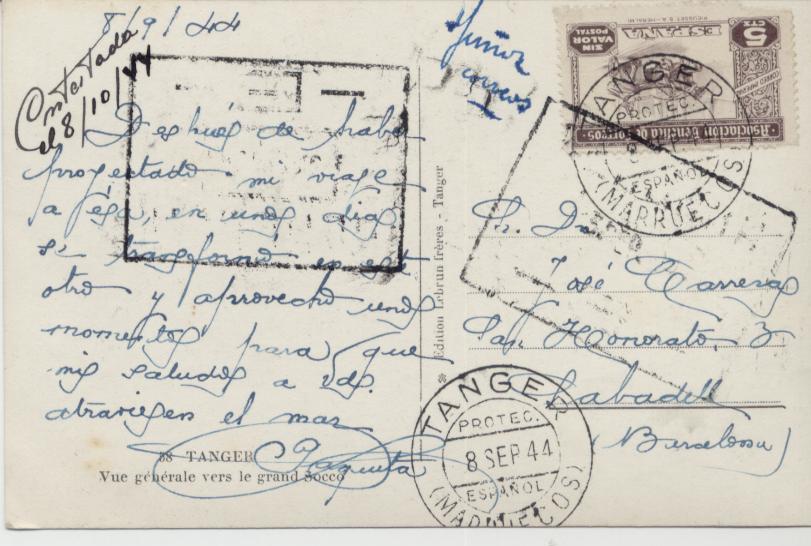 8/9/44
Contestada
el 8/10/44
Después de haber
proyectado mi viage
a ésa, en unos dias
se transformó en est
otro y aprovecho unos
momentos para que
mis saludos a vds.
atraviesen el mar
Paquita
58 TANGER
Vue générale vers le grand Socco
Edition Lebrun frères - Tanger
correos
5 CTS
ESPAÑA
SIN VALOR POSTAL
Asociación Benéfica de Correos
TANGER
PROTEC.
ESPAÑOL
(MARRUECOS)
Sr. Dn.
José Carreras
San Honorato, 3
Sabadell
(Barcelona)
TANGER
PROTEC.
8 SEP 44
ESPAÑOL
(MARRUECOS)